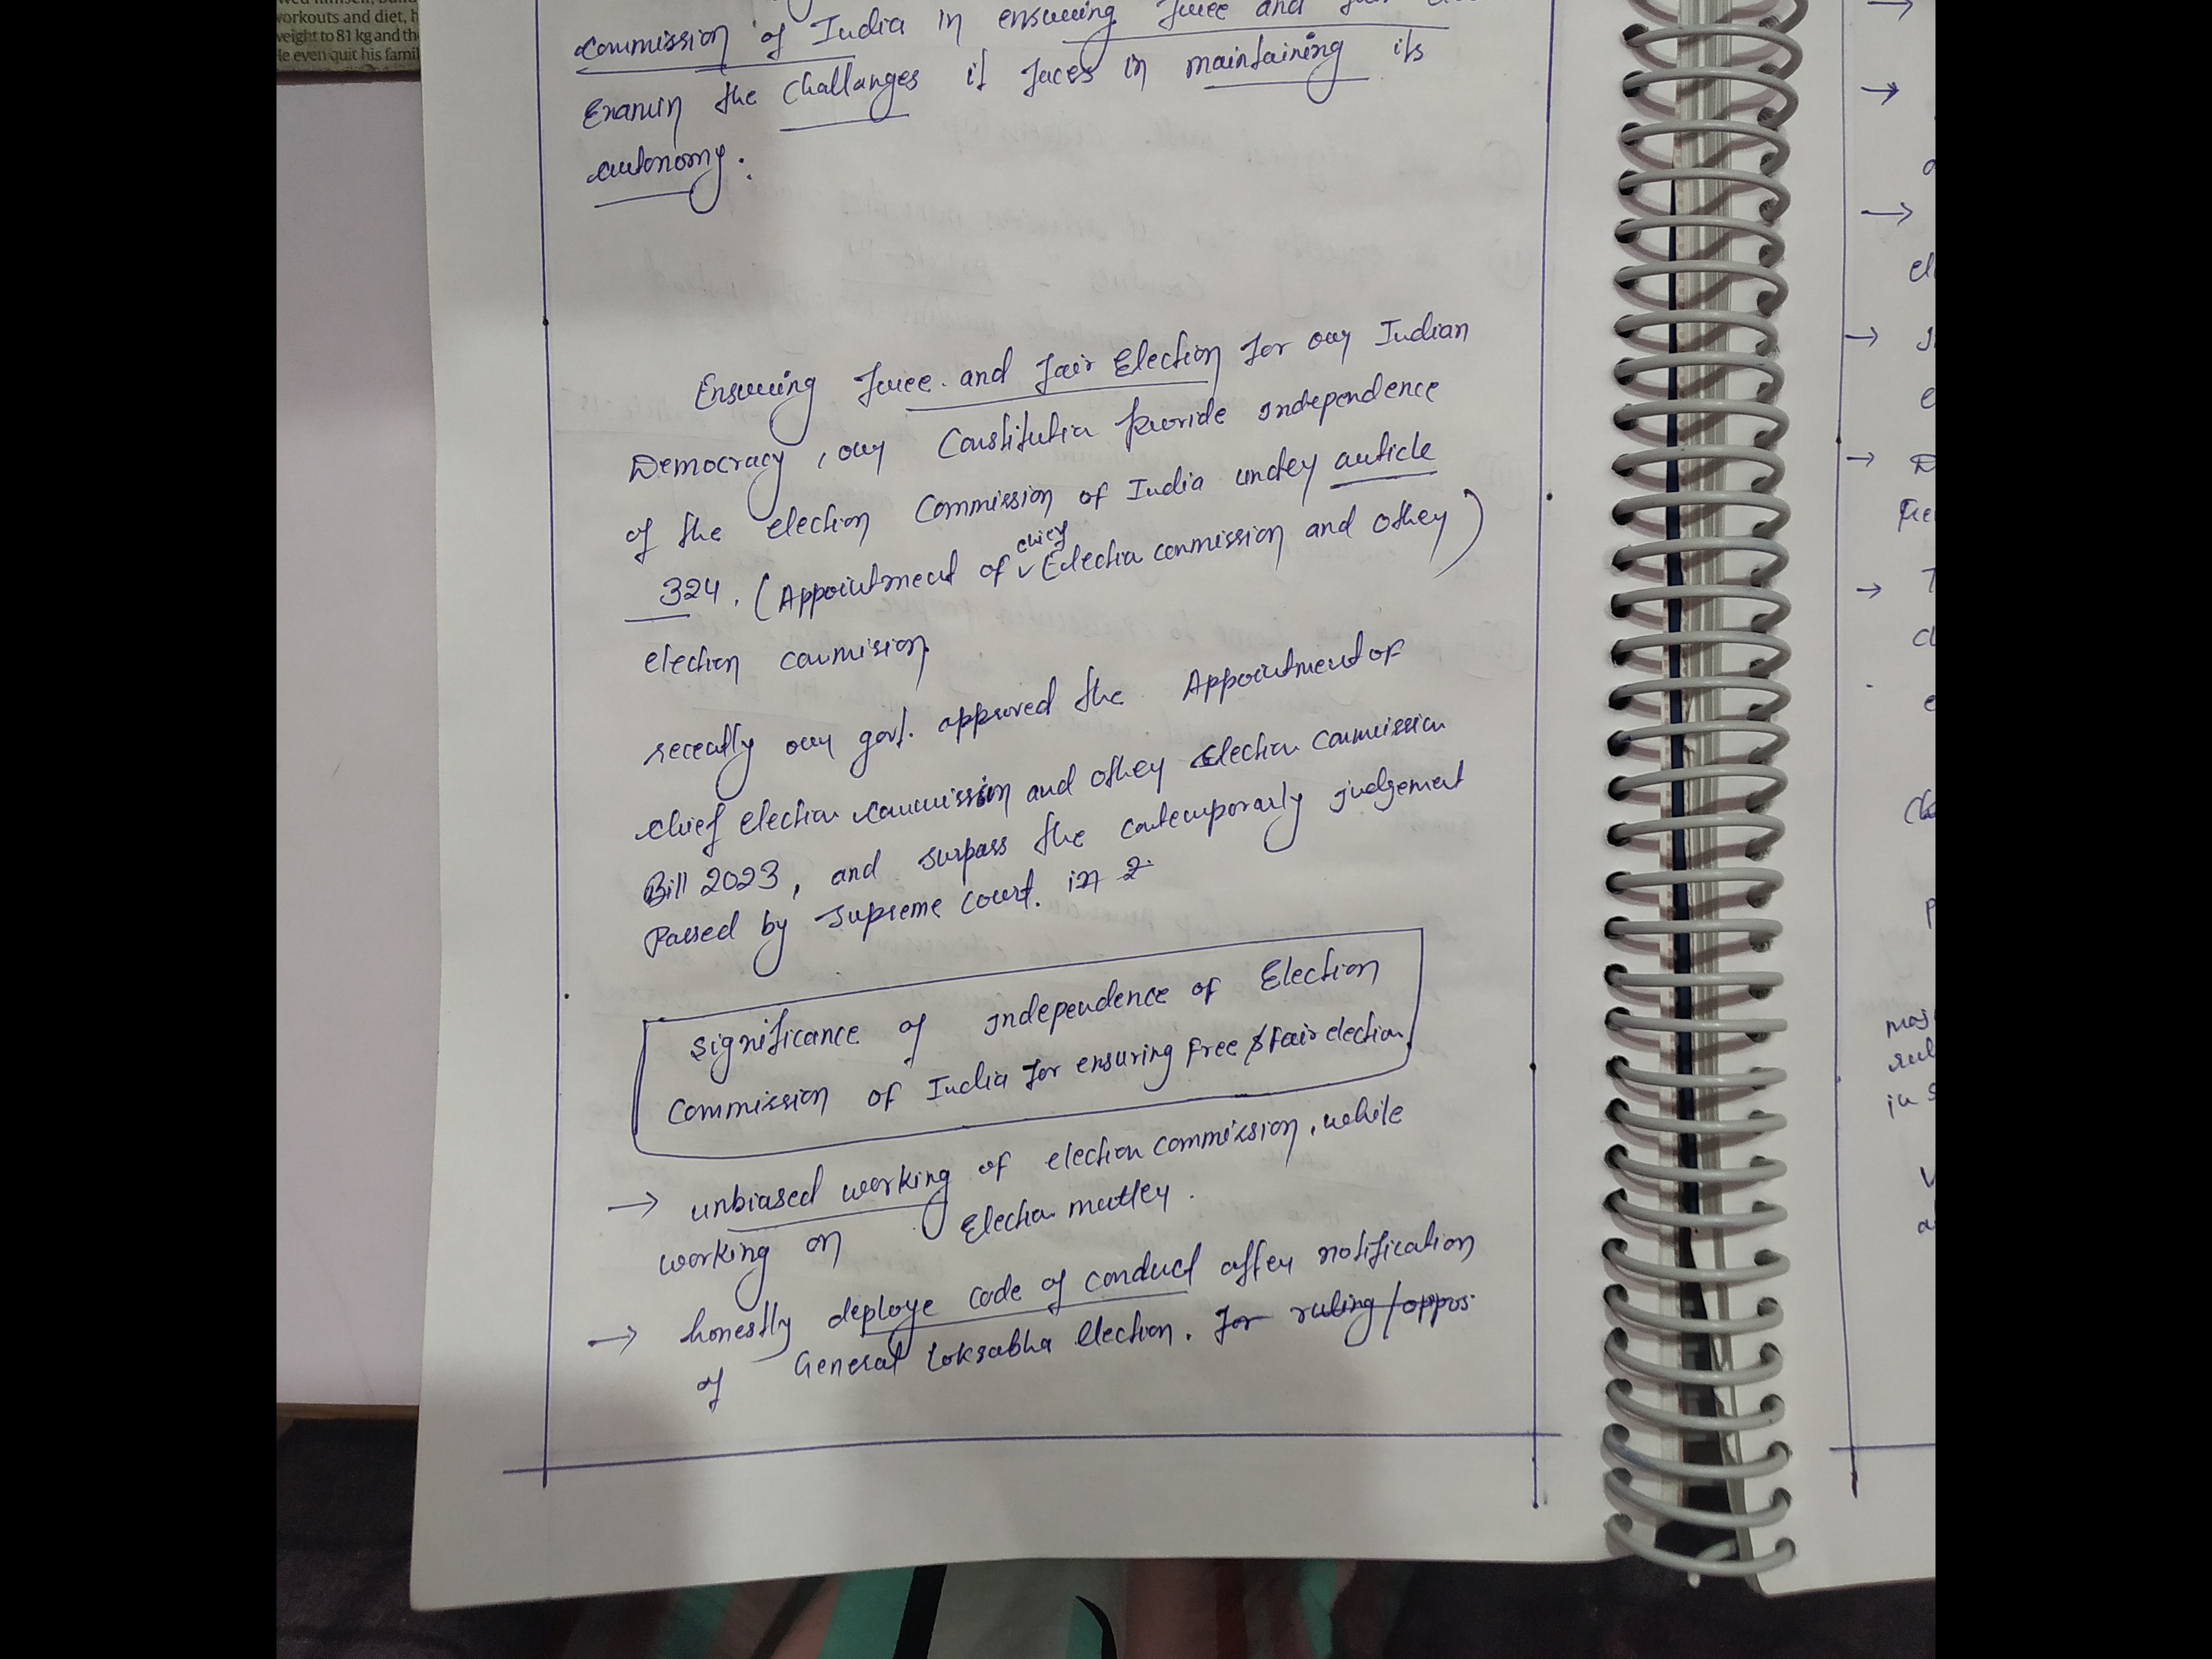 workouts and diet, h
weight to 81 kg and the
He even quit his famil
Commission of India in ensuring free and fair
Examin the challanges it faces in maintaining its
autonomy.
Ensuring free and fair Election for our Indian
Democracy, our Constitution provide independence
of the election Commission of India under article
324. (Appointment of chief Election commission and other)
election commision.
recently our govt. approved the Appointment of
chief election commission and other election commission
Bill 2023, and surpass the contemporarly judgement
Passed by supreme court. in 2
Significance of independence of Election
Commission of India for ensuring free & fair election.
→ unbiased working of election commission, while
working on Election matter.
→ honestly deploye code of conduct after notification
of General loksabha election. for ruling/oppos